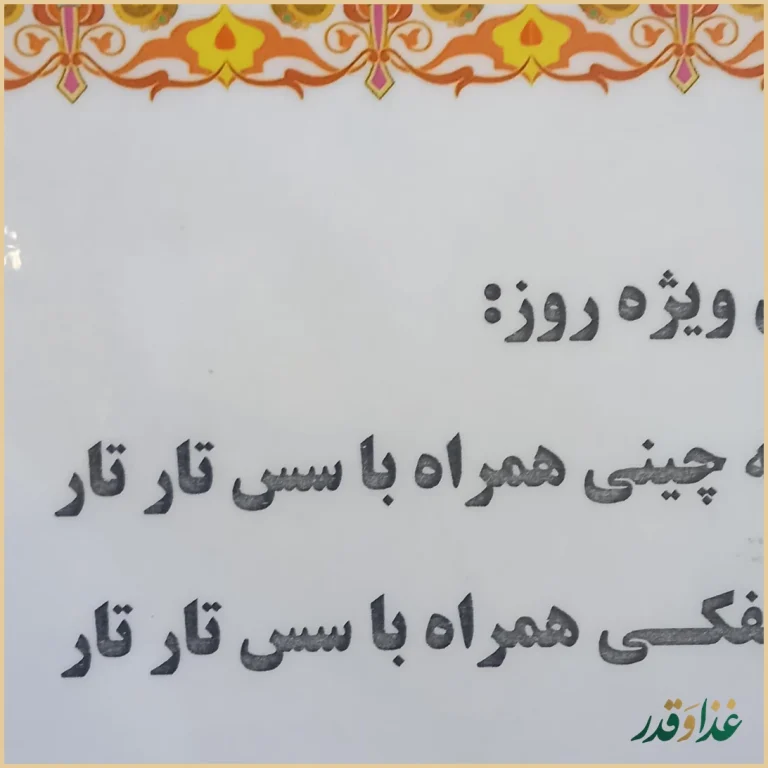 ویژه روز:
چینی همراه با سس تار تار
همراه با سس تار تار
غذا و قدر